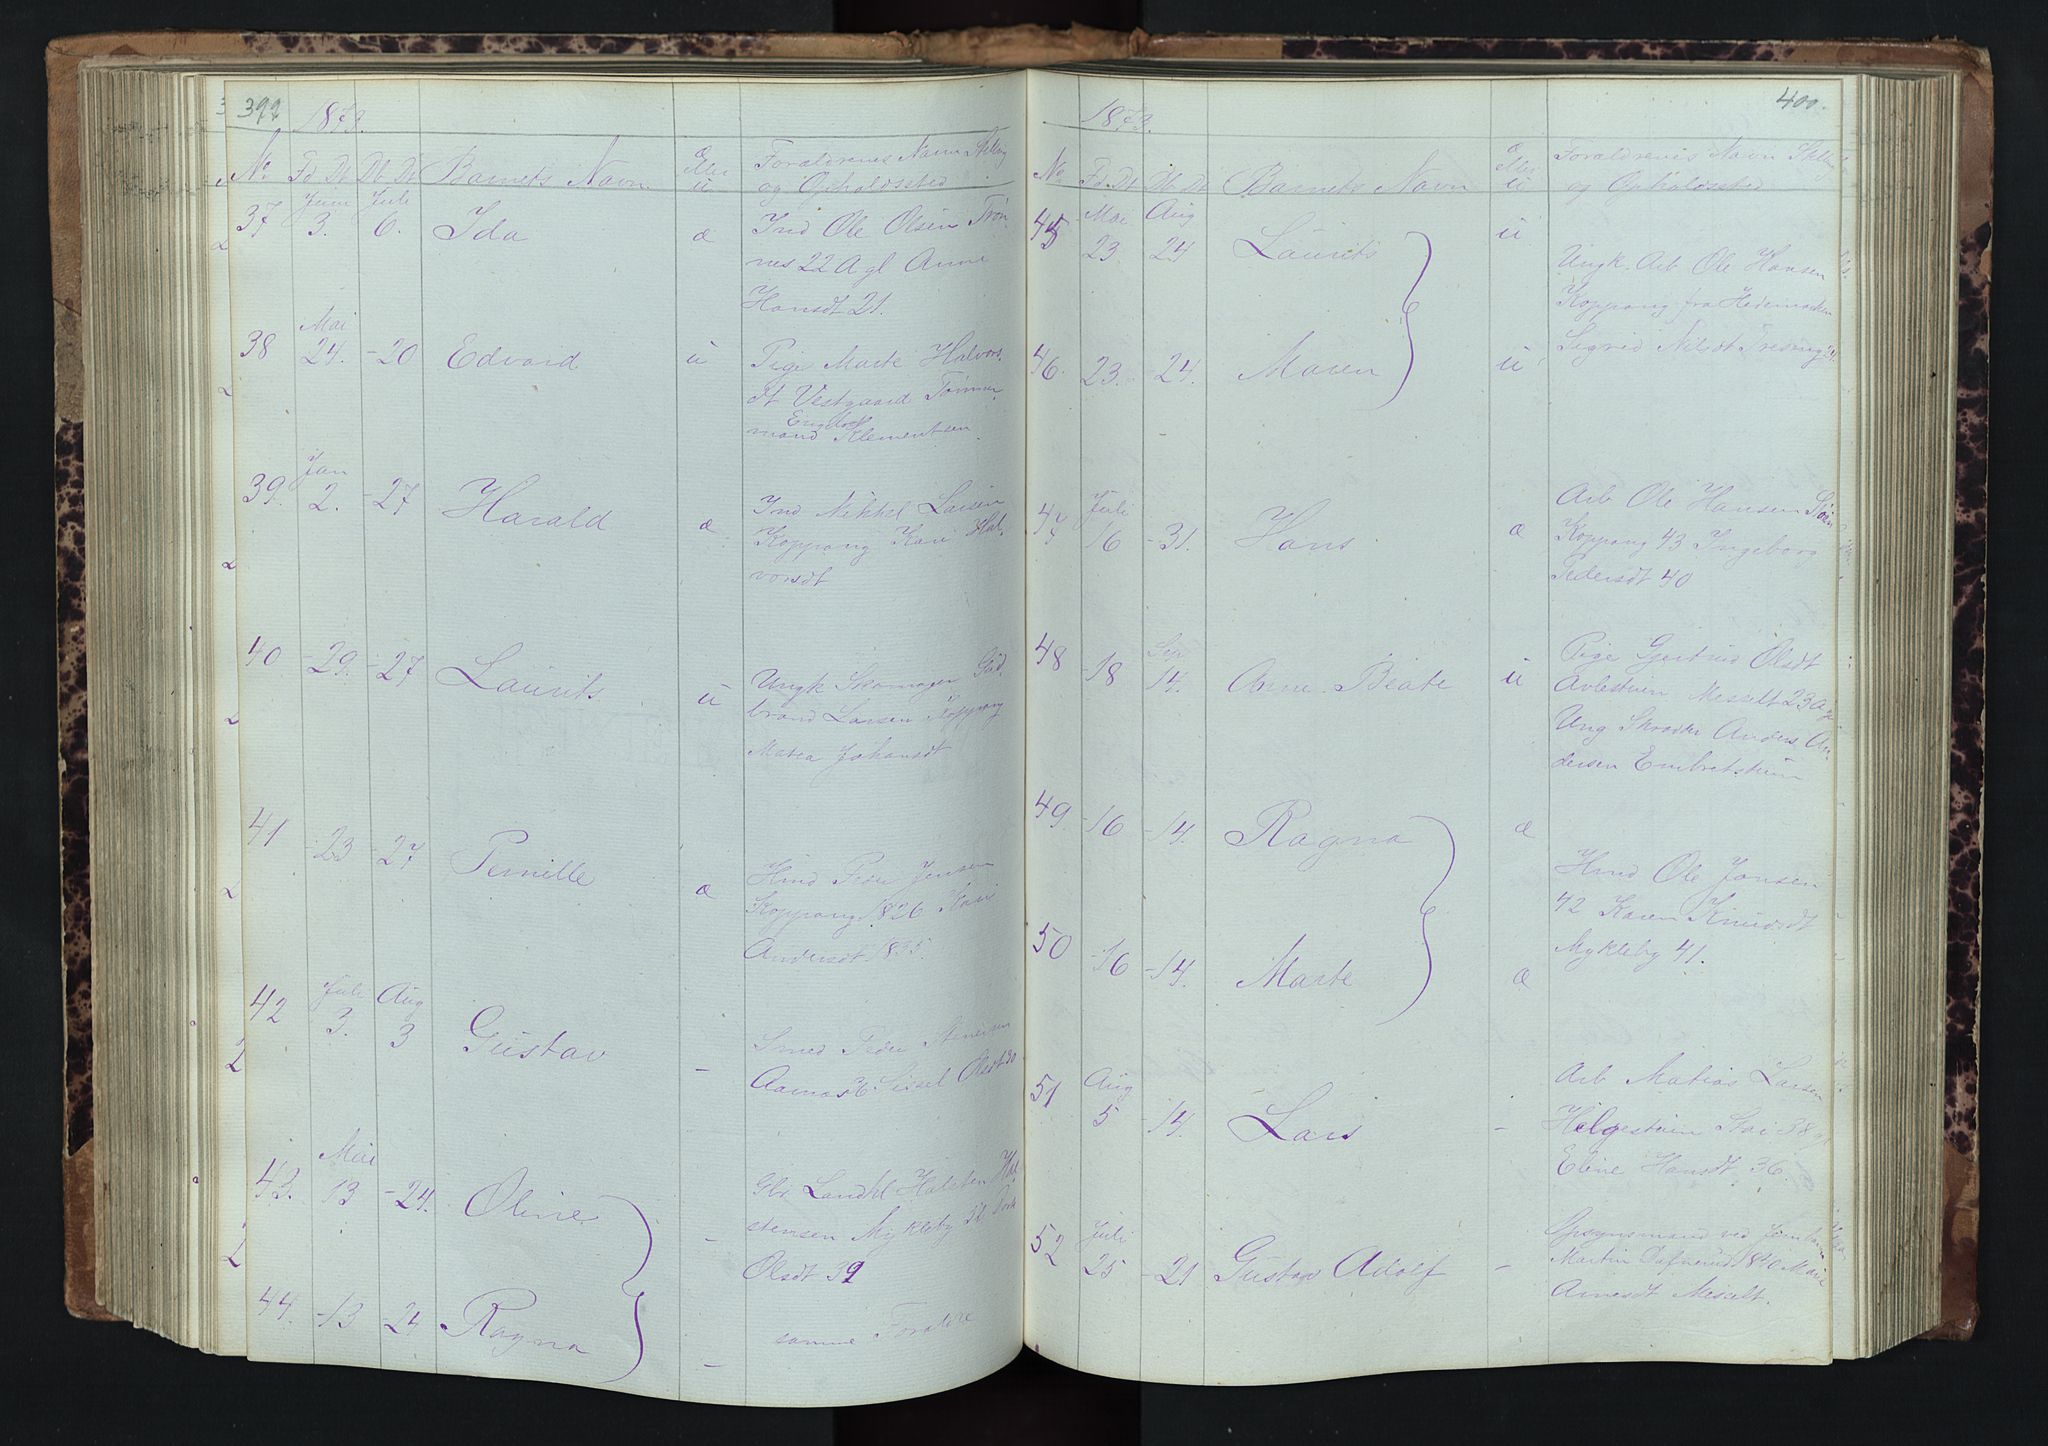 399
1873.
No Fd. Dt. Db. Dt. Barnets Navn æ Eller u Forældrenes Navn Stilling og Opholdssted
37 Juni 3. Juli 6. Ida æ Ind Ole Olsen Trøn-
nes 22 A gl Anne
Hansdt 21.
38 Mai 24. -20 Edvard u Pige Marte Halvors-
dt Vestgaard Tømmer-
mand Klementsen
39. Jan 2. -27 Harald æ Ind Mikkel Larsen
Koppang Kari Hal-
vorsdt
40 -29. -27 Laurits u Ungk Skomager Gud-
brand Larsen Koppang
Matea Johansdt
41 -23 -27 Pernille æ Hmd Peder Jensen
Koppang 1826 Kari
Andersdt 1835.
42 Juli 3. Aug 3 Gustav - Smed Peder
36. Sisel Olsdt 30
43. Mai 13 -24. Oline - Halsten Hal-
stensen Mykleby
Olsdt 39
44. -13 -24 Ragna - samme Foraldre
400.
1873.
No. Fd. Dt. Db. Dt. Barnets Navn æ Eller u Forældrenes Navn Stilling og Opholdssted
45 Mai 23 Aug 24 Laurits u
Ungk. Arb Ole Hansen
Koppang fra Hedemarken
Sigrid Nilsdt
46. 23. 24. Maren u
47 Juli 16 -31. Hans æ Arb Ole Hansen
Koppang 43 Ingeborg
Pedersdt 40
48 -18 Sep 14. Anne Beate u Pige Gjertrud Olsdt
Messelt 23 A gl
Ung Skrædder Anders An-
dersen Embretstuen
49. -16 -14. Ragna æ
Hmd Ole Jonsen
42 Karen Knudsdt
Mykleby 41.
50 -16 -14. Marte æ
51 Aug 5 -14. Lars - Arb Matias Larsen
Helgestuen Stai 38
Eline Hansdt 36.
52 Juli 25 -21 Gustav Adolf - Opsynsmand ved Jernbanen
Martin 1840 Marie
Arnesdt Messelt.